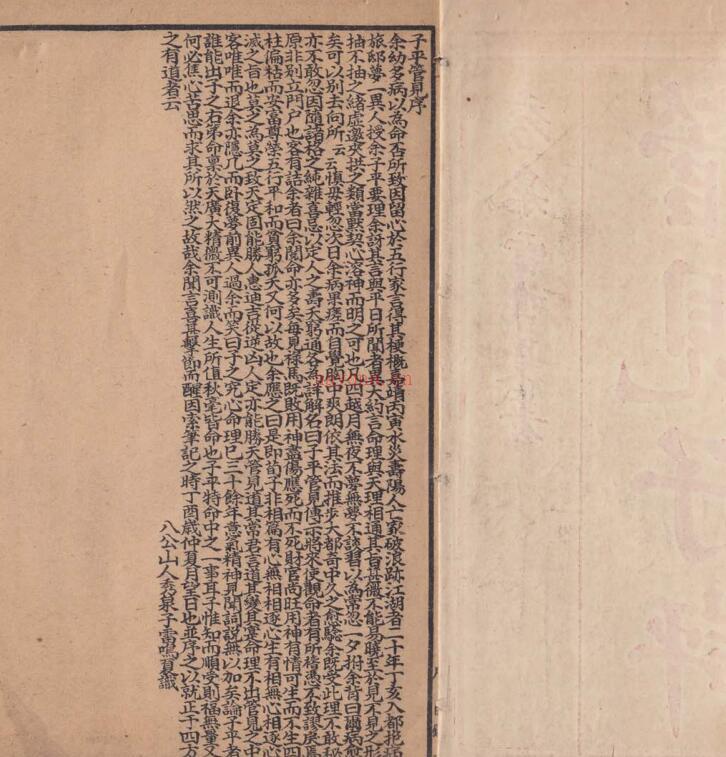 子平管見序
余幼多病以為命否所致因留心於五行家言得其梗概嘉靖丙寅水災壽陽人亡家破浪跡江湖者二十年丁亥入都抱病
旅邸夢一異人授余子平要理余訝其言與平日所聞者異大約言命理與天理相通其旨甚微不能易曉至於見不見之形
抽不抽之緒虛邀夾拱之類當默契心落神而明之可也凡四越月無夜不夢無夢不談習以為常忽一夕拊余背曰爾病愈
矣可以別去向所云云慎毋輕忽次日余病果瘥而自覺胸中爽朗依其法而推步大都奇中久之愈驗余既受此理不敢秘
亦不敢忽因隨諸格之純雜喜忌以定人之壽夭窮通各為詳解名曰子平管見傳示將來使觀命者有所稽憑不致謬戾焉
原非別立門户也客有詰余者曰余閱命亦多矣每見祿馬既敗用神盡傷應死而不死財官尚旺用神有情可生而不生四
柱偏枯而安富尊榮五行平和而貧窮孤夭又何以故也余應之曰是即荀子非相篇有心無相相逐心生有相無心相逐心
滅之旨也莫之為莫之致天定固能勝人惠迪吉從逆凶人定亦能勝天管見道其常君言道其變其寔命理不出管見之中
客唯唯而退余亦隱几而卧復夢前異人過余而笑曰子之究心命理已三十餘年意氣精神見聞詞說無以加矣論子平者
誰能出子之右第命稟於天廣大精微不可測識人生所值秋毫皆命也子平特命中之一事耳子惟知而順受則福無量又
何必焦心苦思而求其所以然之故哉余聞言喜甚擊節而醒因索筆記之時丁酉歲仲夏月望日也並序之以就正于四方
之有道者云
八公山人秀泉子雷鳴夏識